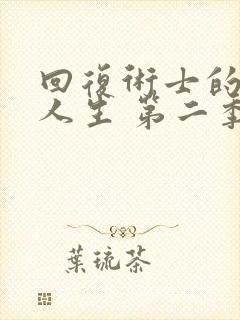 回復術士的
人生 第二季
葉琉茶